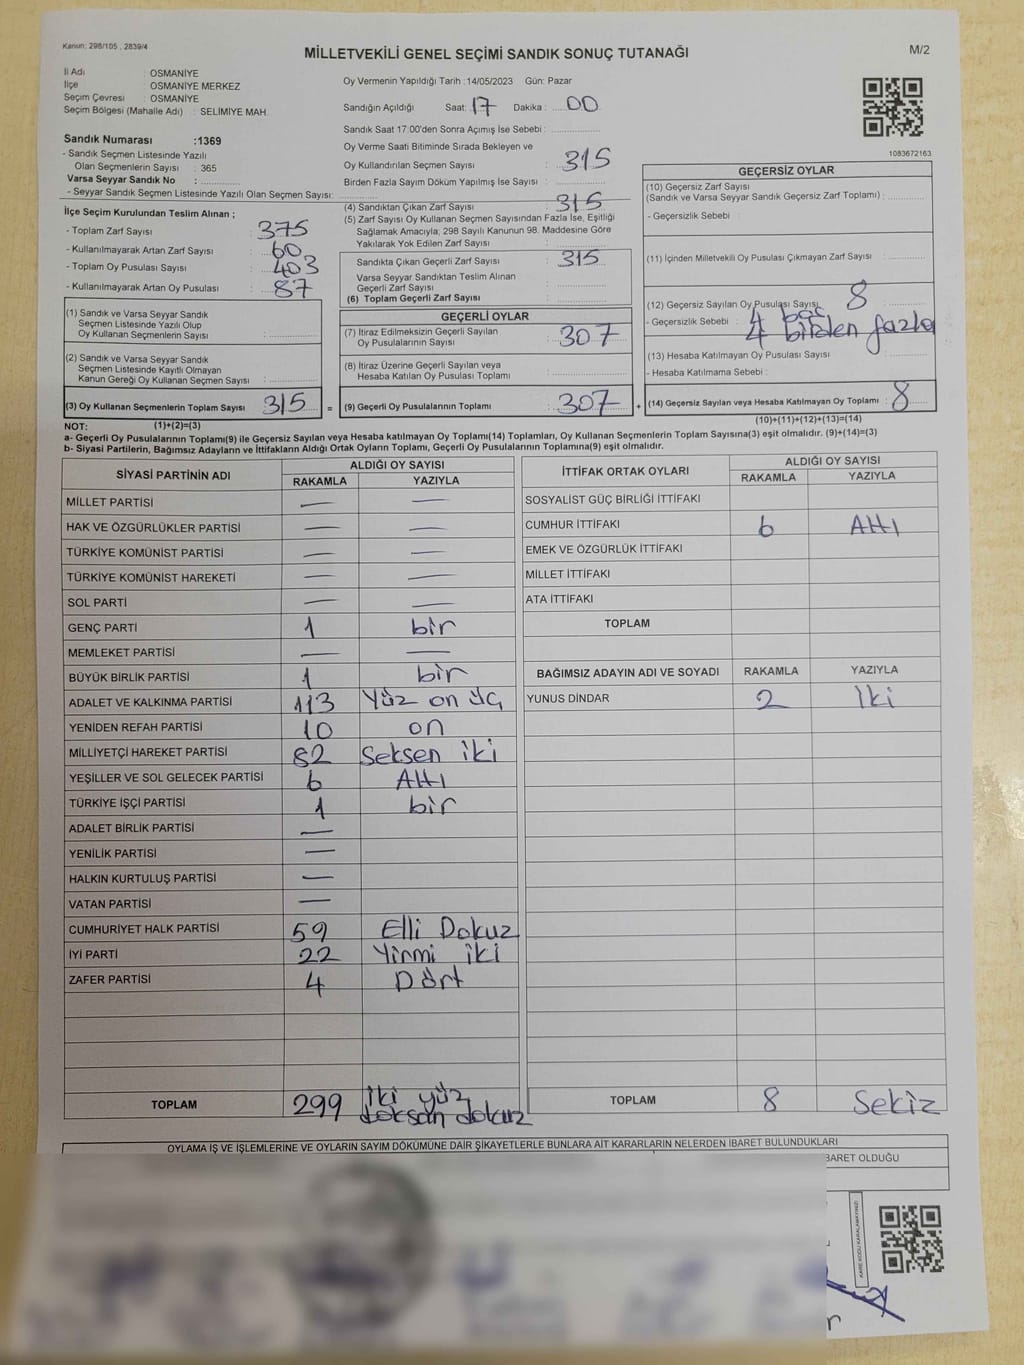 Kanun: 298/105 , 2839/4
MİLLETVEKİLİ GENEL SEÇİMİ SANDIK SONUÇ TUTANAĞI
M/2
İl Adı : OSMANİYE
İlçe : OSMANİYE MERKEZ
Seçim Çevresi : OSMANİYE
Seçim Bölgesi (Mahalle Adı) : SELİMİYE MAH.
Sandık Numarası :1369
- Sandık Seçmen Listesinde Yazılı
Olan Seçmenlerin Sayısı : 365
Varsa Seyyar Sandık No :
- Seyyar Sandık Seçmen Listesinde Yazılı Olan Seçmen Sayısı:
İlçe Seçim Kurulundan Teslim Alınan ;
- Toplam Zarf Sayısı : 375
- Kullanılmayarak Artan Zarf Sayısı : 60
- Toplam Oy Pusulası Sayısı : 403
- Kullanılmayarak Artan Oy Pusulası : 87
(1) Sandık ve Varsa Seyyar Sandık
Seçmen Listesinde Yazılı Olup
Oy Kullanan Seçmenlerin Sayısı :
(2) Sandık ve Varsa Seyyar Sandık
Seçmen Listesinde Kayıtlı Olmayan
Kanun Gereği Oy Kullanan Seçmen Sayısı :
(3) Oy Kullanan Seçmenlerin Toplam Sayısı : 315 =
Oy Vermenin Yapıldığı Tarih :14/05/2023 Gün: Pazar
Sandığın Açıldığı Saat: 17 Dakika : 00
Sandık Saat 17:00'den Sonra Açımış İse Sebebi :
Oy Verme Saati Bitiminde Sırada Bekleyen ve
Oy Kullandırılan Seçmen Sayısı : 315
Birden Fazla Sayım Döküm Yapılmış İse Sayısı :
(4) Sandıktan Çıkan Zarf Sayısı : 315
(5) Zarf Sayısı Oy Kullanan Seçmen Sayısından Fazla İse, Eşitliği
Sağlamak Amacıyla; 298 Sayılı Kanunun 98. Maddesine Göre
Yakılarak Yok Edilen Zarf Sayısı :
Sandıkta Çıkan Geçerli Zarf Sayısı : 315
Varsa Seyyar Sandıktan Teslim Alınan
Geçerli Zarf Sayısı :
(6) Toplam Geçerli Zarf Sayısı :
GEÇERLİ OYLAR
(7) İtiraz Edilmeksizin Geçerli Sayılan
Oy Pusulalarının Sayısı : 307
(8) İtiraz Üzerine Geçerli Sayılan veya
Hesaba Katılan Oy Pusulası Toplamı :
(9) Geçerli Oy Pusulalarının Toplamı : 307 +
1083672163
GEÇERSİZ OYLAR
(10) Geçersiz Zarf Sayısı
(Sandık ve Varsa Seyyar Sandık Geçersiz Zarf Toplamı) :
- Geçersizlik Sebebi :
(11) İçinden Milletvekili Oy Pusulası Çıkmayan Zarf Sayısı :
(12) Geçersiz Sayılan Oy Pusulası Sayısı : 8
- Geçersizlik Sebebi : 4 boş
4 birden fazla
(13) Hesaba Katılmayan Oy Pusulası Sayısı :
- Hesaba Katılmama Sebebi :
(14) Geçersiz Sayılan veya Hesaba Katılmayan Oy Toplamı : 8
NOT: (1)+(2)=(3) (10)+(11)+(12)+(13)=(14)
a- Geçerli Oy Pusulalarının Toplamı(9) ile Geçersiz Sayılan veya Hesaba katılmayan Oy Toplamı(14) Toplamları, Oy Kullanan Seçmenlerin Toplam Sayısına(3) eşit olmalıdır. (9)+(14)=(3)
b- Siyasi Partilerin, Bağımsız Adayların ve İttifakların Aldığı Ortak Oyların Toplamı, Geçerli Oy Pusulalarının Toplamına(9) eşit olmalıdır.
SİYASİ PARTİNİN ADI ALDIĞI OY SAYISI
RAKAMLA YAZIYLA
MİLLET PARTİSİ — —
HAK VE ÖZGÜRLÜKLER PARTİSİ — —
TÜRKİYE KOMÜNİST PARTİSİ — —
TÜRKİYE KOMÜNİST HAREKETİ — —
SOL PARTİ — —
GENÇ PARTİ 1 bir
MEMLEKET PARTİSİ — —
BÜYÜK BİRLİK PARTİSİ 1 bir
ADALET VE KALKINMA PARTİSİ 113 Yüz on üç
YENİDEN REFAH PARTİSİ 10 on
MİLLİYETÇİ HAREKET PARTİSİ 82 Seksen iki
YEŞİLLER VE SOL GELECEK PARTİSİ 6 Altı
TÜRKİYE İŞÇİ PARTİSİ 1 bir
ADALET BİRLİK PARTİSİ —
YENİLİK PARTİSİ —
HALKIN KURTULUŞ PARTİSİ —
VATAN PARTİSİ —
CUMHURİYET HALK PARTİSİ 59 Elli Dokuz
İYİ PARTİ 22 Yirmi iki
ZAFER PARTİSİ 4 Dört
TOPLAM 299 iki yüz
doksan dokuz
İTTİFAK ORTAK OYLARI ALDIĞI OY SAYISI
RAKAMLA YAZIYLA
SOSYALİST GÜÇ BİRLİĞİ İTTİFAKI
CUMHUR İTTİFAKI 6 Altı
EMEK VE ÖZGÜRLÜK İTTİFAKI
MİLLET İTTİFAKI
ATA İTTİFAKI
TOPLAM
BAĞIMSIZ ADAYIN ADI VE SOYADI RAKAMLA YAZIYLA
YUNUS DİNDAR 2 İki
TOPLAM 8 Sekiz
OYLAMA İŞ VE İŞLEMLERİNE VE OYLARIN SAYIM DÖKÜMÜNE DAİR ŞİKAYETLERLE BUNLARA AİT KARARLARIN NELERDEN İBARET BULUNDUKLARI
BARET OLDUĞU
KARE KODU KARALAMAYINIZ!